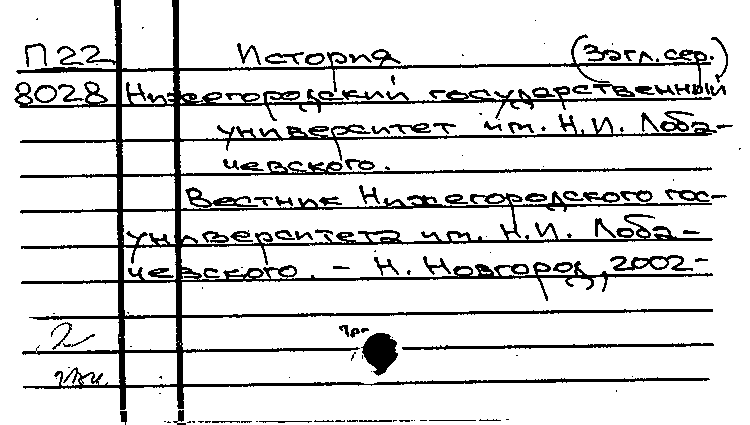 П22 История (Загл.сер.)
8028 Нижегородский государственный
университет им. Н.И. Лоба-
чевского.
Вестник Нижегородского гос-
университета им. Н.И. Лоба-
чевского. – Н. Новгород, 2002-
2